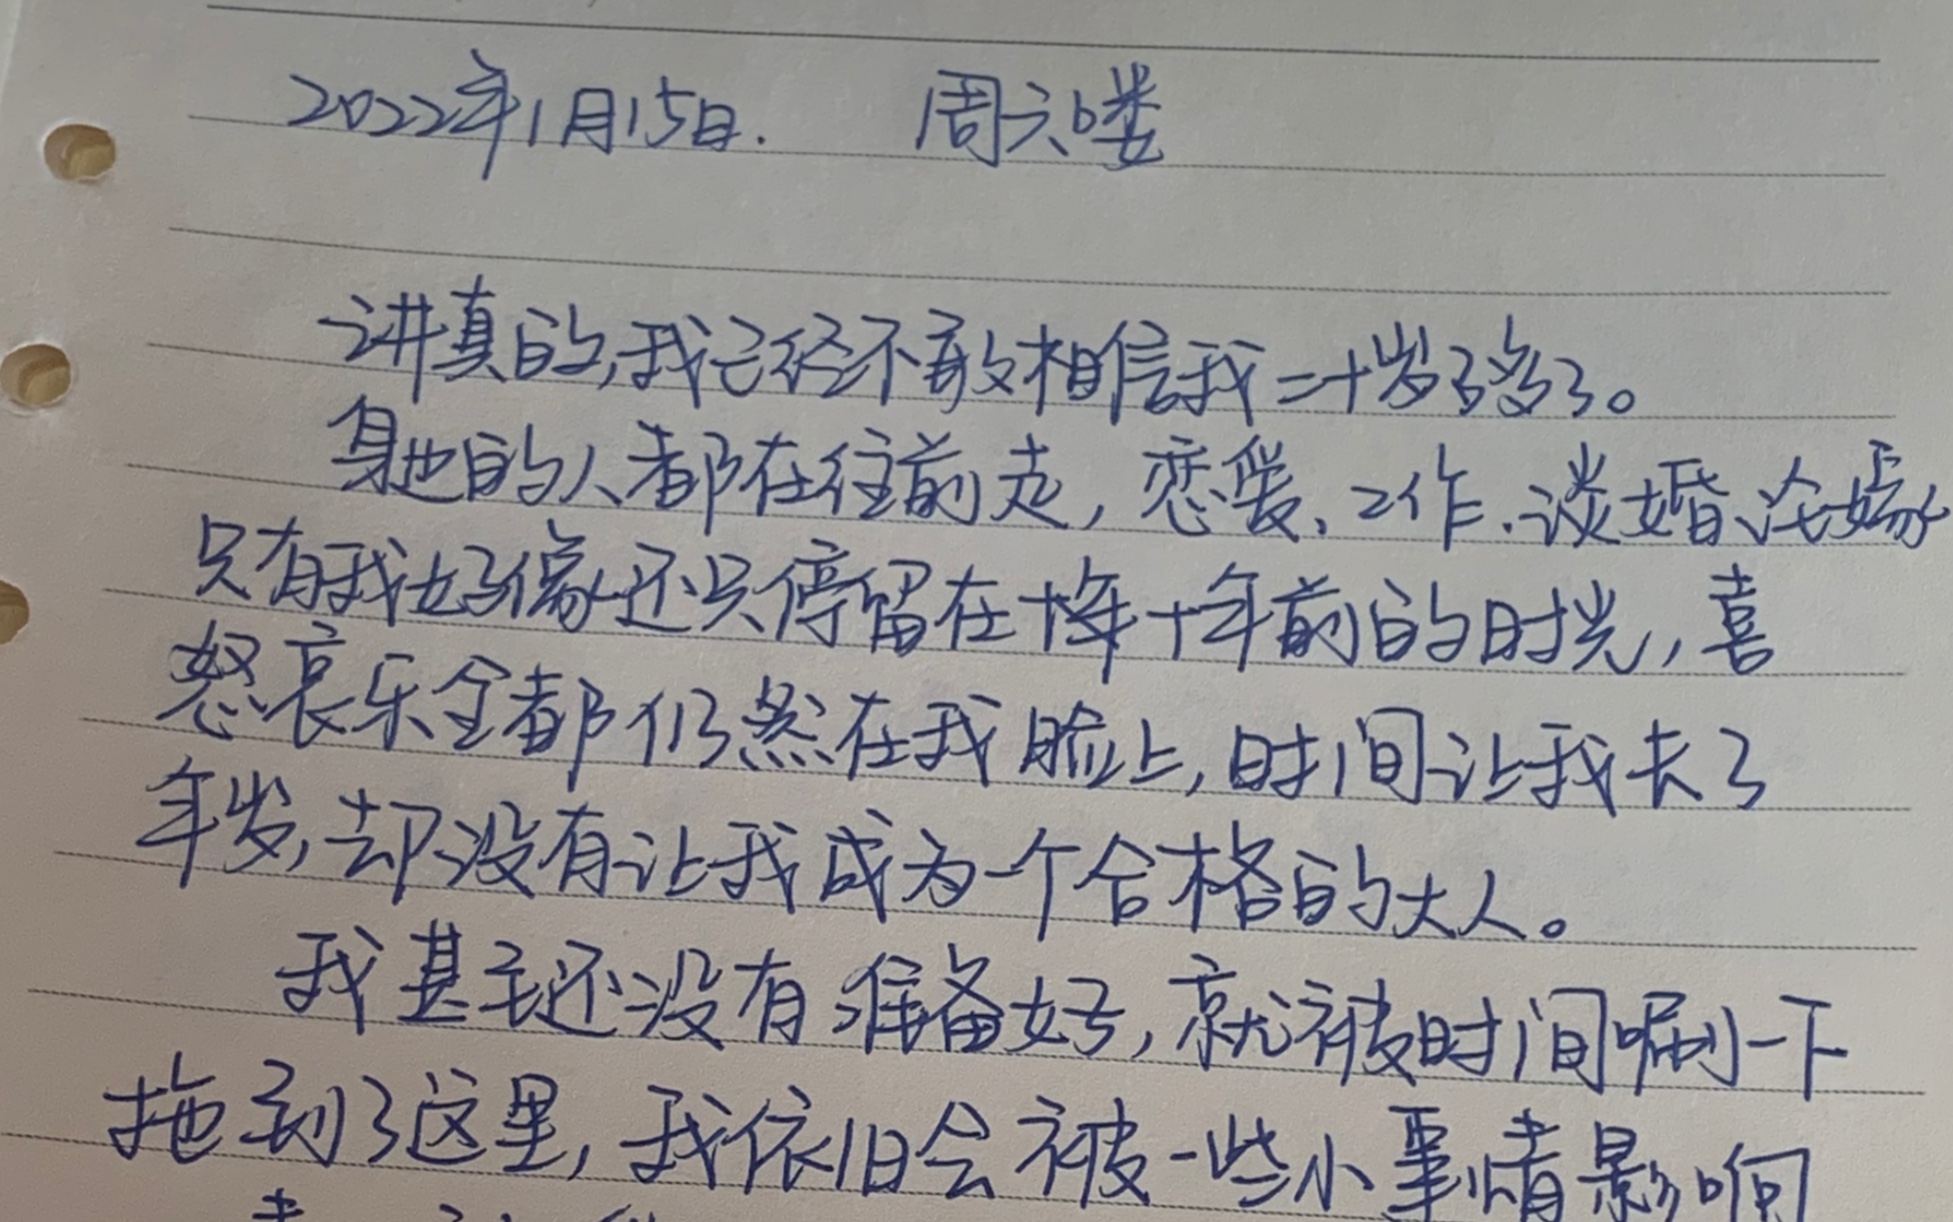 2022年1月15日. 周六喽
讲真的,我已经不敢相信我二十岁了多了。
身边的人都在往前走,恋爱、工作、谈婚论嫁
只有我好像还只停留在十年十年前的时光,喜
怒哀乐全都仍然在我脸上,时间让我长了
年岁,却没有让我成为一个合格的大人。
我甚至还没有准备好,就被时间唰一下
拖到了这里,我依旧会被一些小事情影响